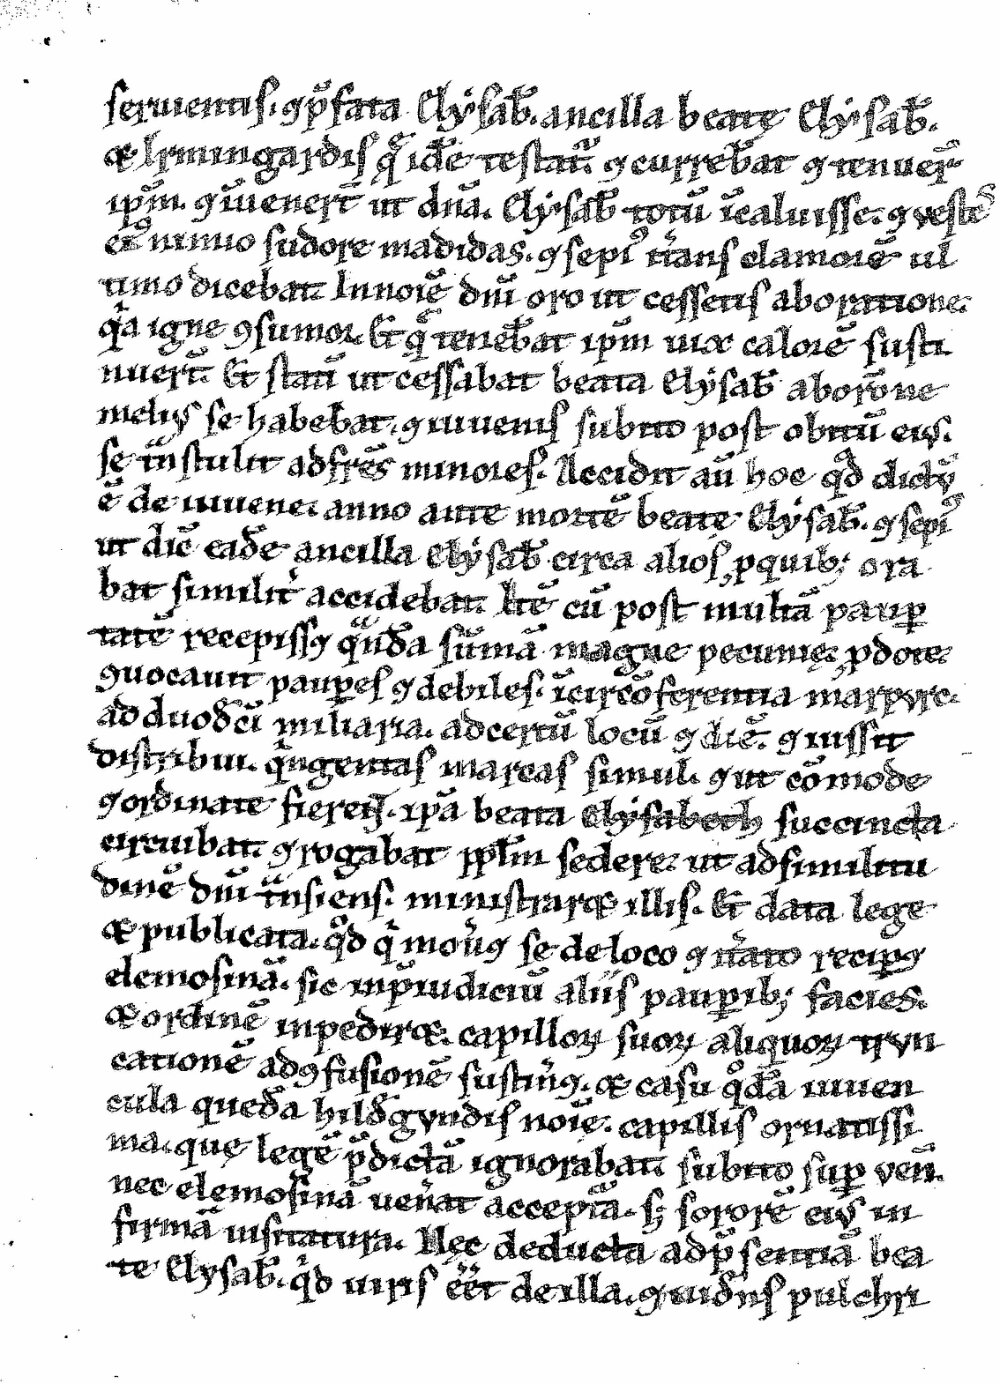 seruentis. ꝯp̃fata Elẏsab̃. ancilla beatę Elẏsab̃.
⁊ Irmingardis q̃ idẽ testat᷑ ꝯcurreb̃at ꝯ tenuer̃
ip̃m. ꝯ iuuener̃t ut dñã. Elẏsab̃ totũ ĩcaluisse. ꝯ uestes
ei⁹ nimio sudore madidas. ꝯ sepi⁹ itãns clamorẽ ul
timo dicebat. In noiẽ dñi oro ut cessetis ab oratione.
q̃a igne ꝯsumor. Et q̃ teneb̃at ip̃m uix calorẽ susti
nuer̃t. Et statĩ ut cessabat beata Elẏsab̃ ab or̃one
meli⁹ se habebat. ꝯ iuuenis subito post obitũ ei⁹.
se t̃nstulit ad fr̃es minores. Accidit aũ hoc qd̃ dictũ
ẽ de iuuene. anno ante mortẽ beatę Elẏsab̃. ꝯ sepi⁹
ut dic̃ eadẽ ancilla Elẏsab̃ circa alios, ꝓ quib; ora
bat similit̃ accidebat. Itẽ cũ post multã paup̱
tatẽ recepiss⁹ q̃ndã sũmã magne pecunię. ꝓ dote.
ꝯuocauit paup̱es ꝯ debiles. ĩ circũferentia marpurc.
ad duodec̃i miliaria. ad certũ locũ ꝯ diẽ. ꝯ iussit
distribui. q̃ngentas marcas simul. ꝯ ut cõmode
ꝯ ordinate fieret. ip̃a beata Elẏsabeth succincta
circuibat. ꝯ rogabat pp̃lm sedere. ut ad similitu
dinẽ dñi t̃nsiens. ministraret illis. Et data lege
⁊ publicata. qd̃ q̃ mou̾et se de loco ꝯ it̃ato recip̱et
elemosinã. sic in p̃iudiciũ aliis paup̱ib; facies.
⁊ ordinẽ inpediret. capilloꝝ suoꝝ aliquoꝝ trun
cationẽ ad ꝯfusionẽ sustin̾et. ⁊ casu q̃dã iuuen
cula quedã hild̃gundis noiẽ. capillis ornatissi
ma. quę legẽ p̃dictã ignorabat. subito sup̱ ven̾.
nec elemosinã uen̾at acceptã. sꝫ sororẽ ei⁹ in
firmã uisitatura. Nęc deducta ad p̃sentiã bea
te Elẏsab̃. qd̃ uiris eẽt de illa. ꝯ uidẽs pulchri